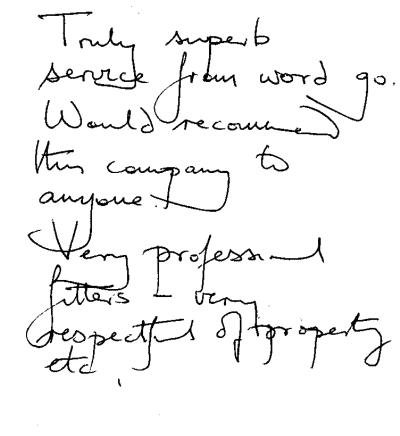 Truly superb
service from word go.
Would recommend
this company to
anyone.
Very professional
fitters – very
respectful of property
etc.